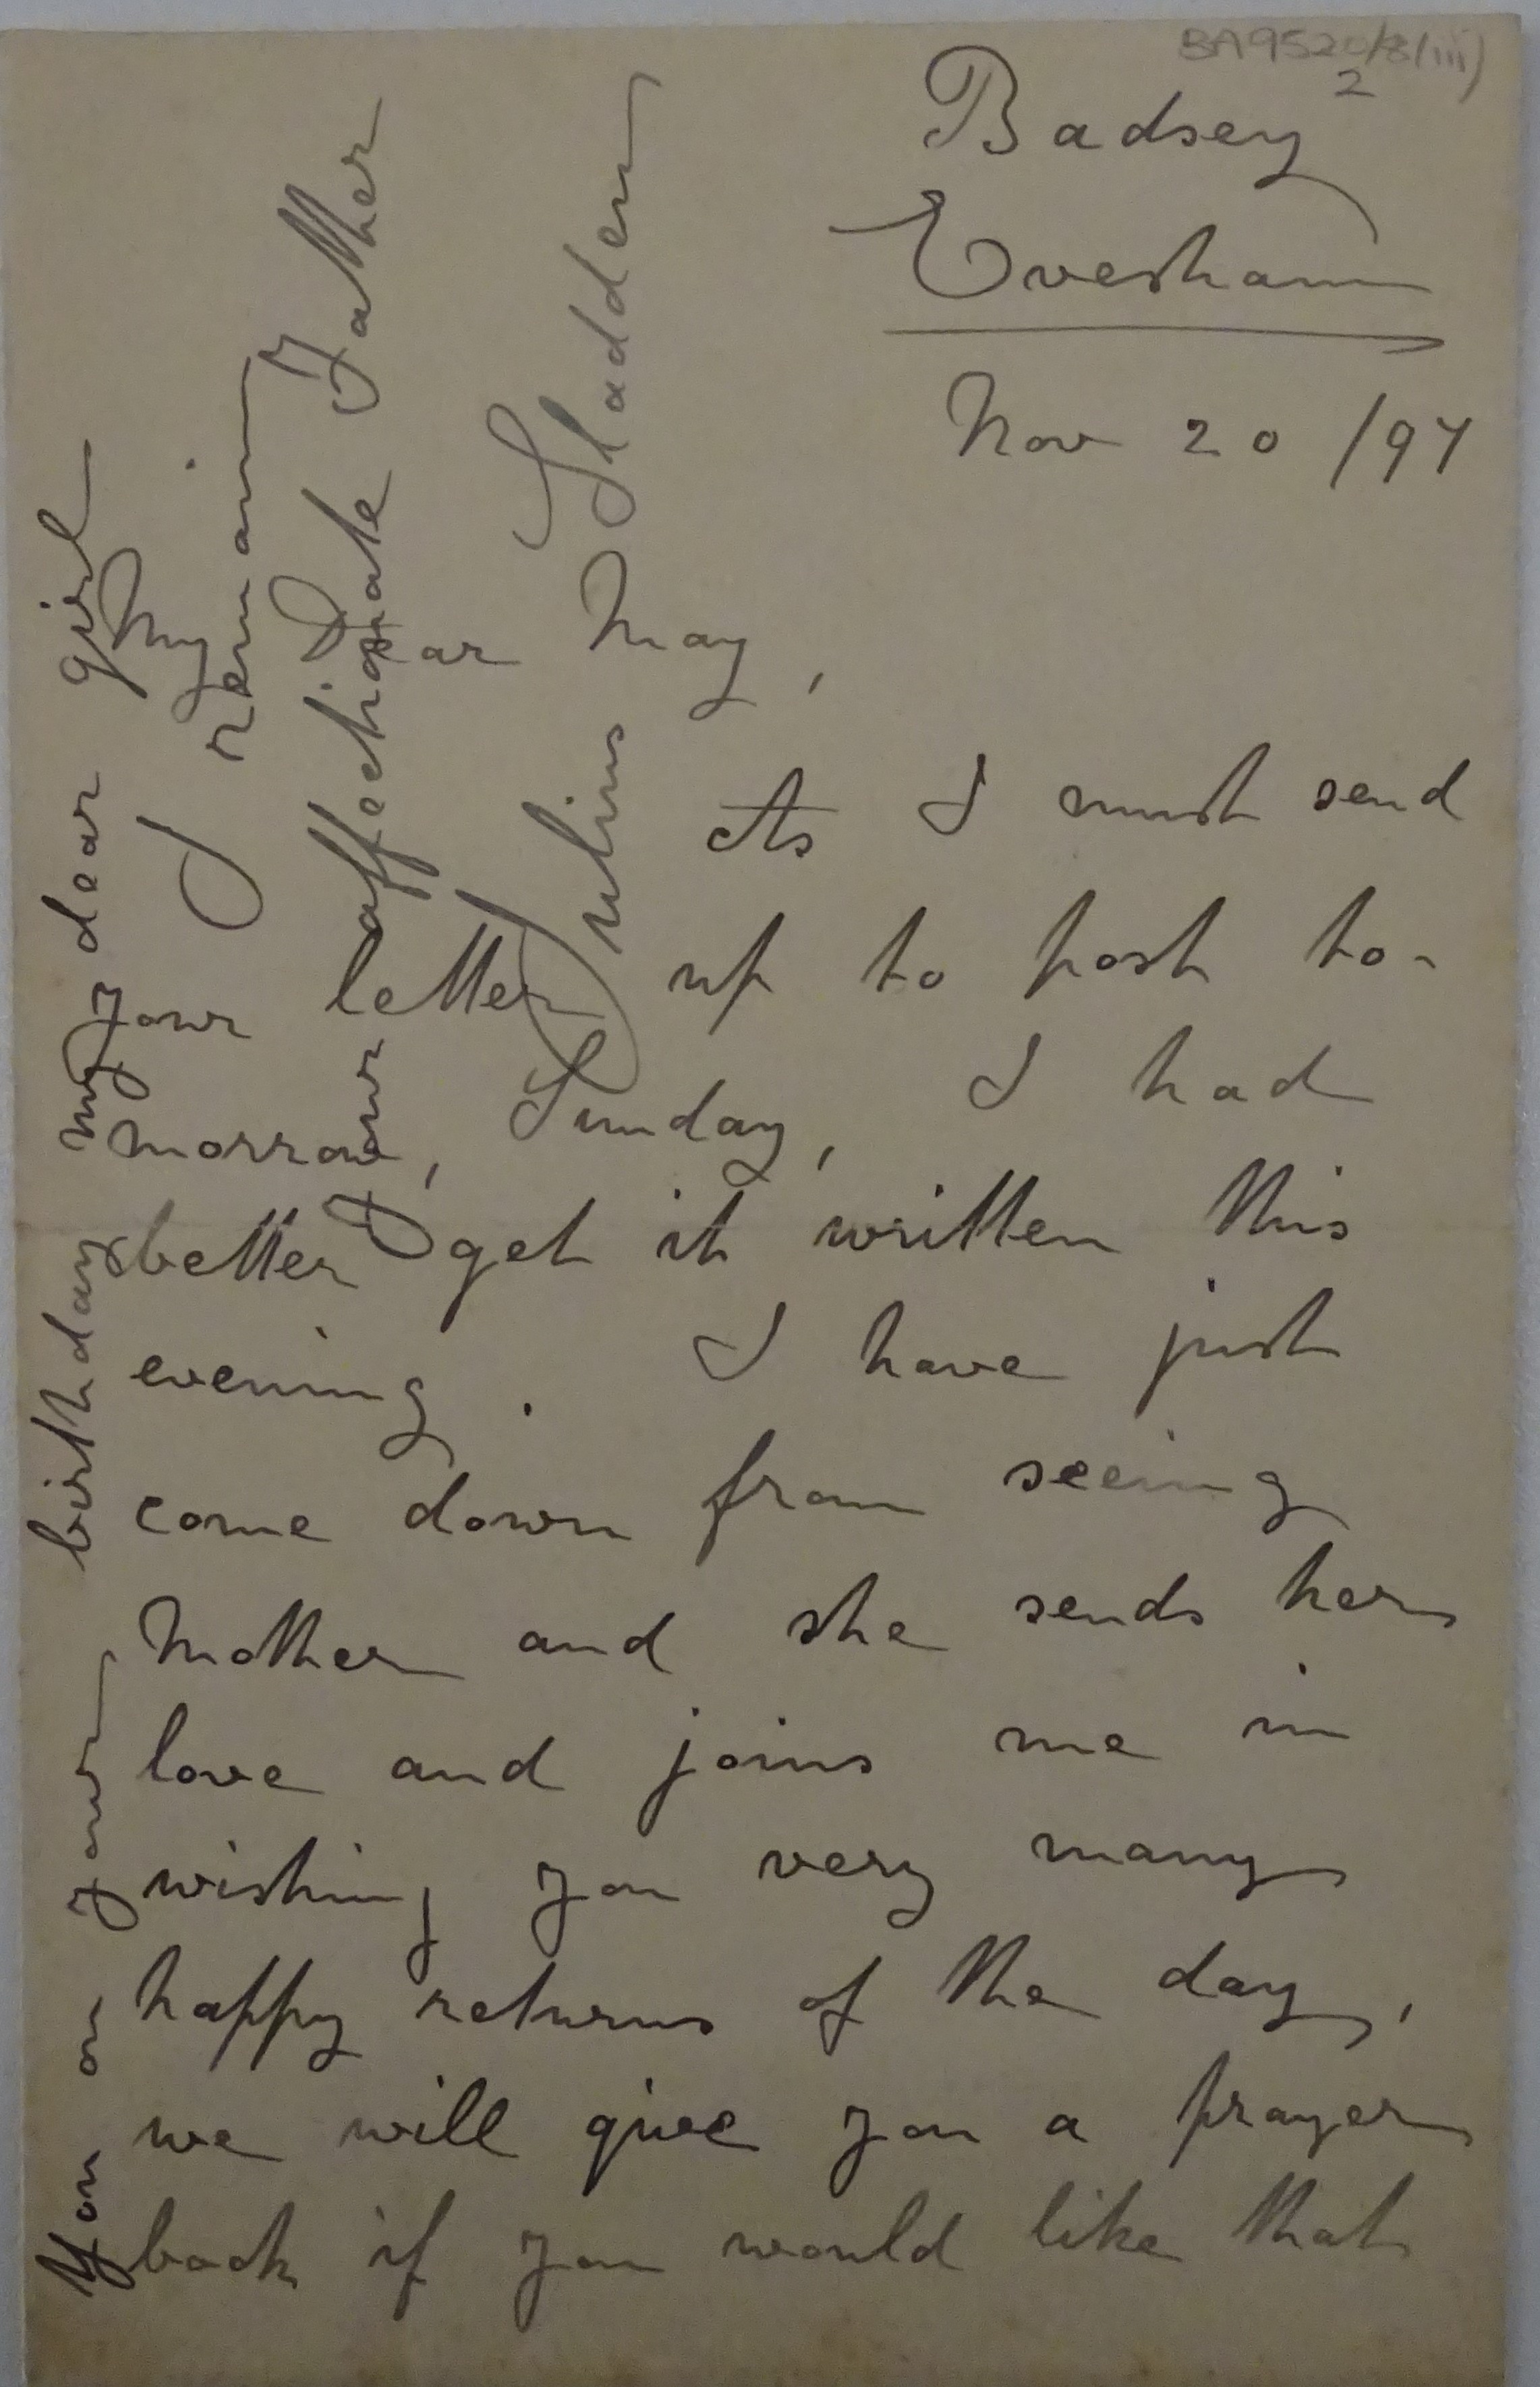 BA9520/8/iii)
2
Badsey
Evesham
Nov 20 /97
My Dear May,
As I must send
your letter up to post to-
morrow, Sunday, I had
better get it written this
evening. I have just
come down from seeing
Mother and she sends her
love and joins me in
wishing you very many
happy returns of the day,
we will give you a prayer
book if you would like that
you on your birthday my dear girl
I remain
Your affectionate Father
Julius Sladden